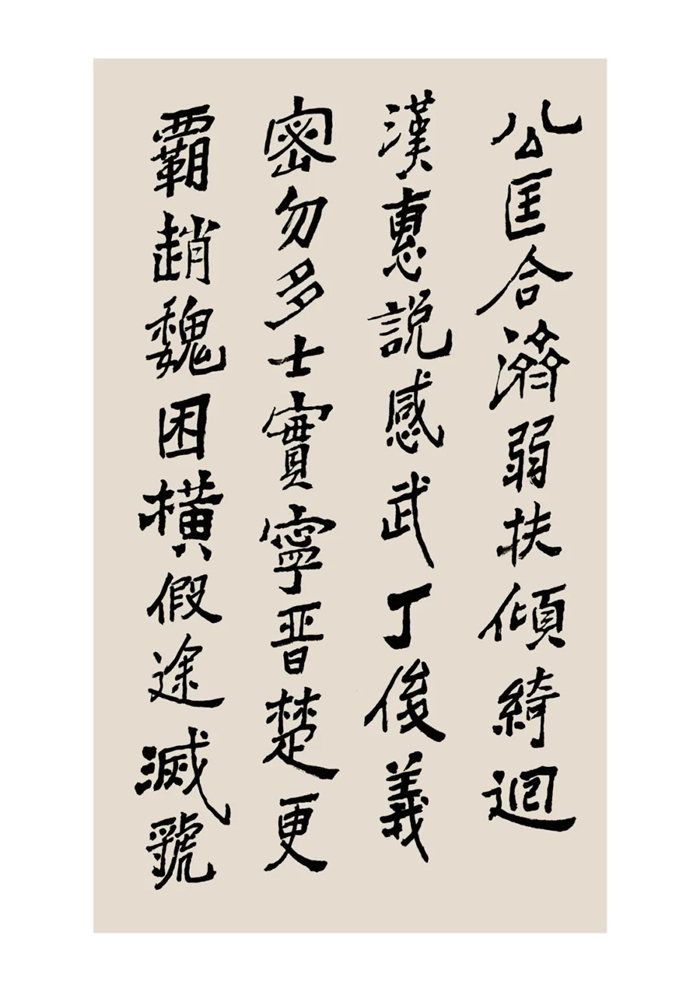 公匡合濟弱扶傾綺迴
漢惠說感武丁俊義
密勿多士實寧晉楚更
霸趙魏困橫假途滅虢